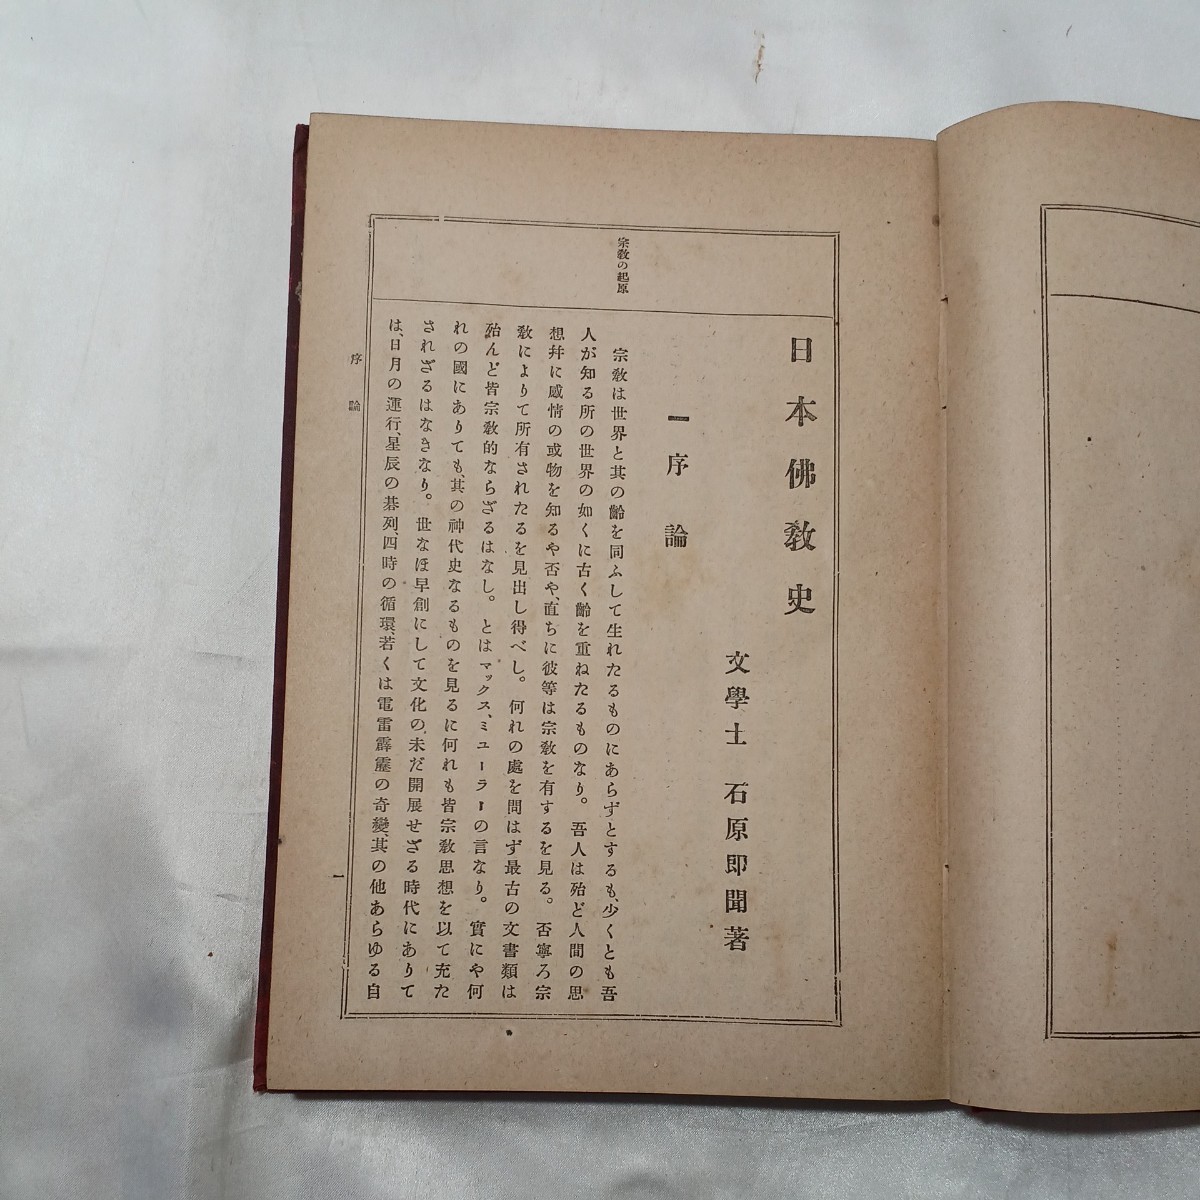 宗敎の起原
日本佛敎史
文學士 石原卽聞著
一 序論
宗敎は世界と其の齡を同ふして生れたるものにあらずとするも、少くとも吾
人が知る所の世界の如くに古く齡を重ねたるものなり。吾人は殆ど人間の思
想幷に感情の或物を知るや否や、直ちに彼等は宗敎を有するを見る。否寧ろ宗
敎によりて所有されたるを見出し得べし。何れの處を問はず最古の文書類は
殆んど皆宗敎的ならざるはなし。とはマックス、ミューラーの言なり。實にや何
れの國にありても、其の神代史なるものを見るに何れも皆宗敎思想を以て充た
されざるはなきなり。世なほ早創にして文化の未だ開展せざる時代にありて
は、日月の運行、星辰の碁列、四時の循環、若くは電雷霹靂の奇變、其の他あらゆる自
序論
一